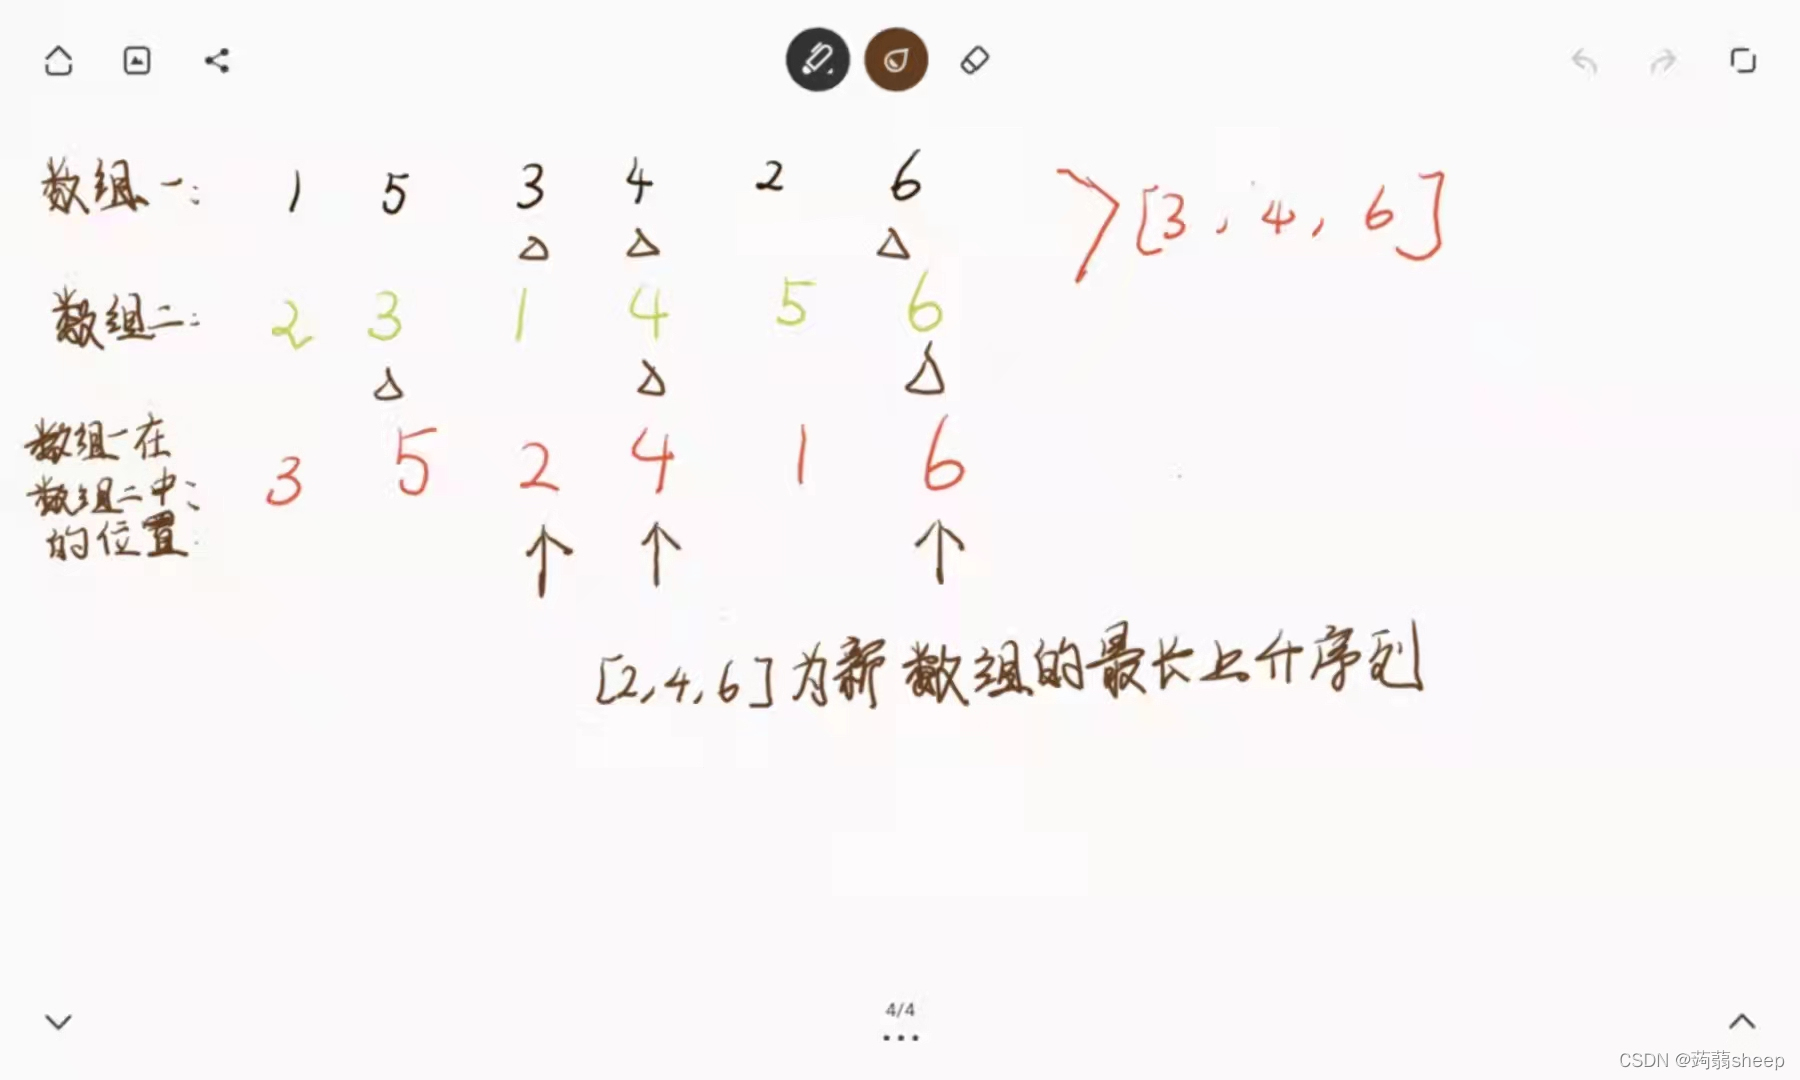 数组一: 1 5 3 4 2 6
[3, 4, 6]
数组二: 2 3 1 4 5 6
数组一在
数组二中: 3 5 2 4 1 6
的位置
[2,4,6]为新数组的最长上升序列
4/4
CSDN @蒟蒻sheep